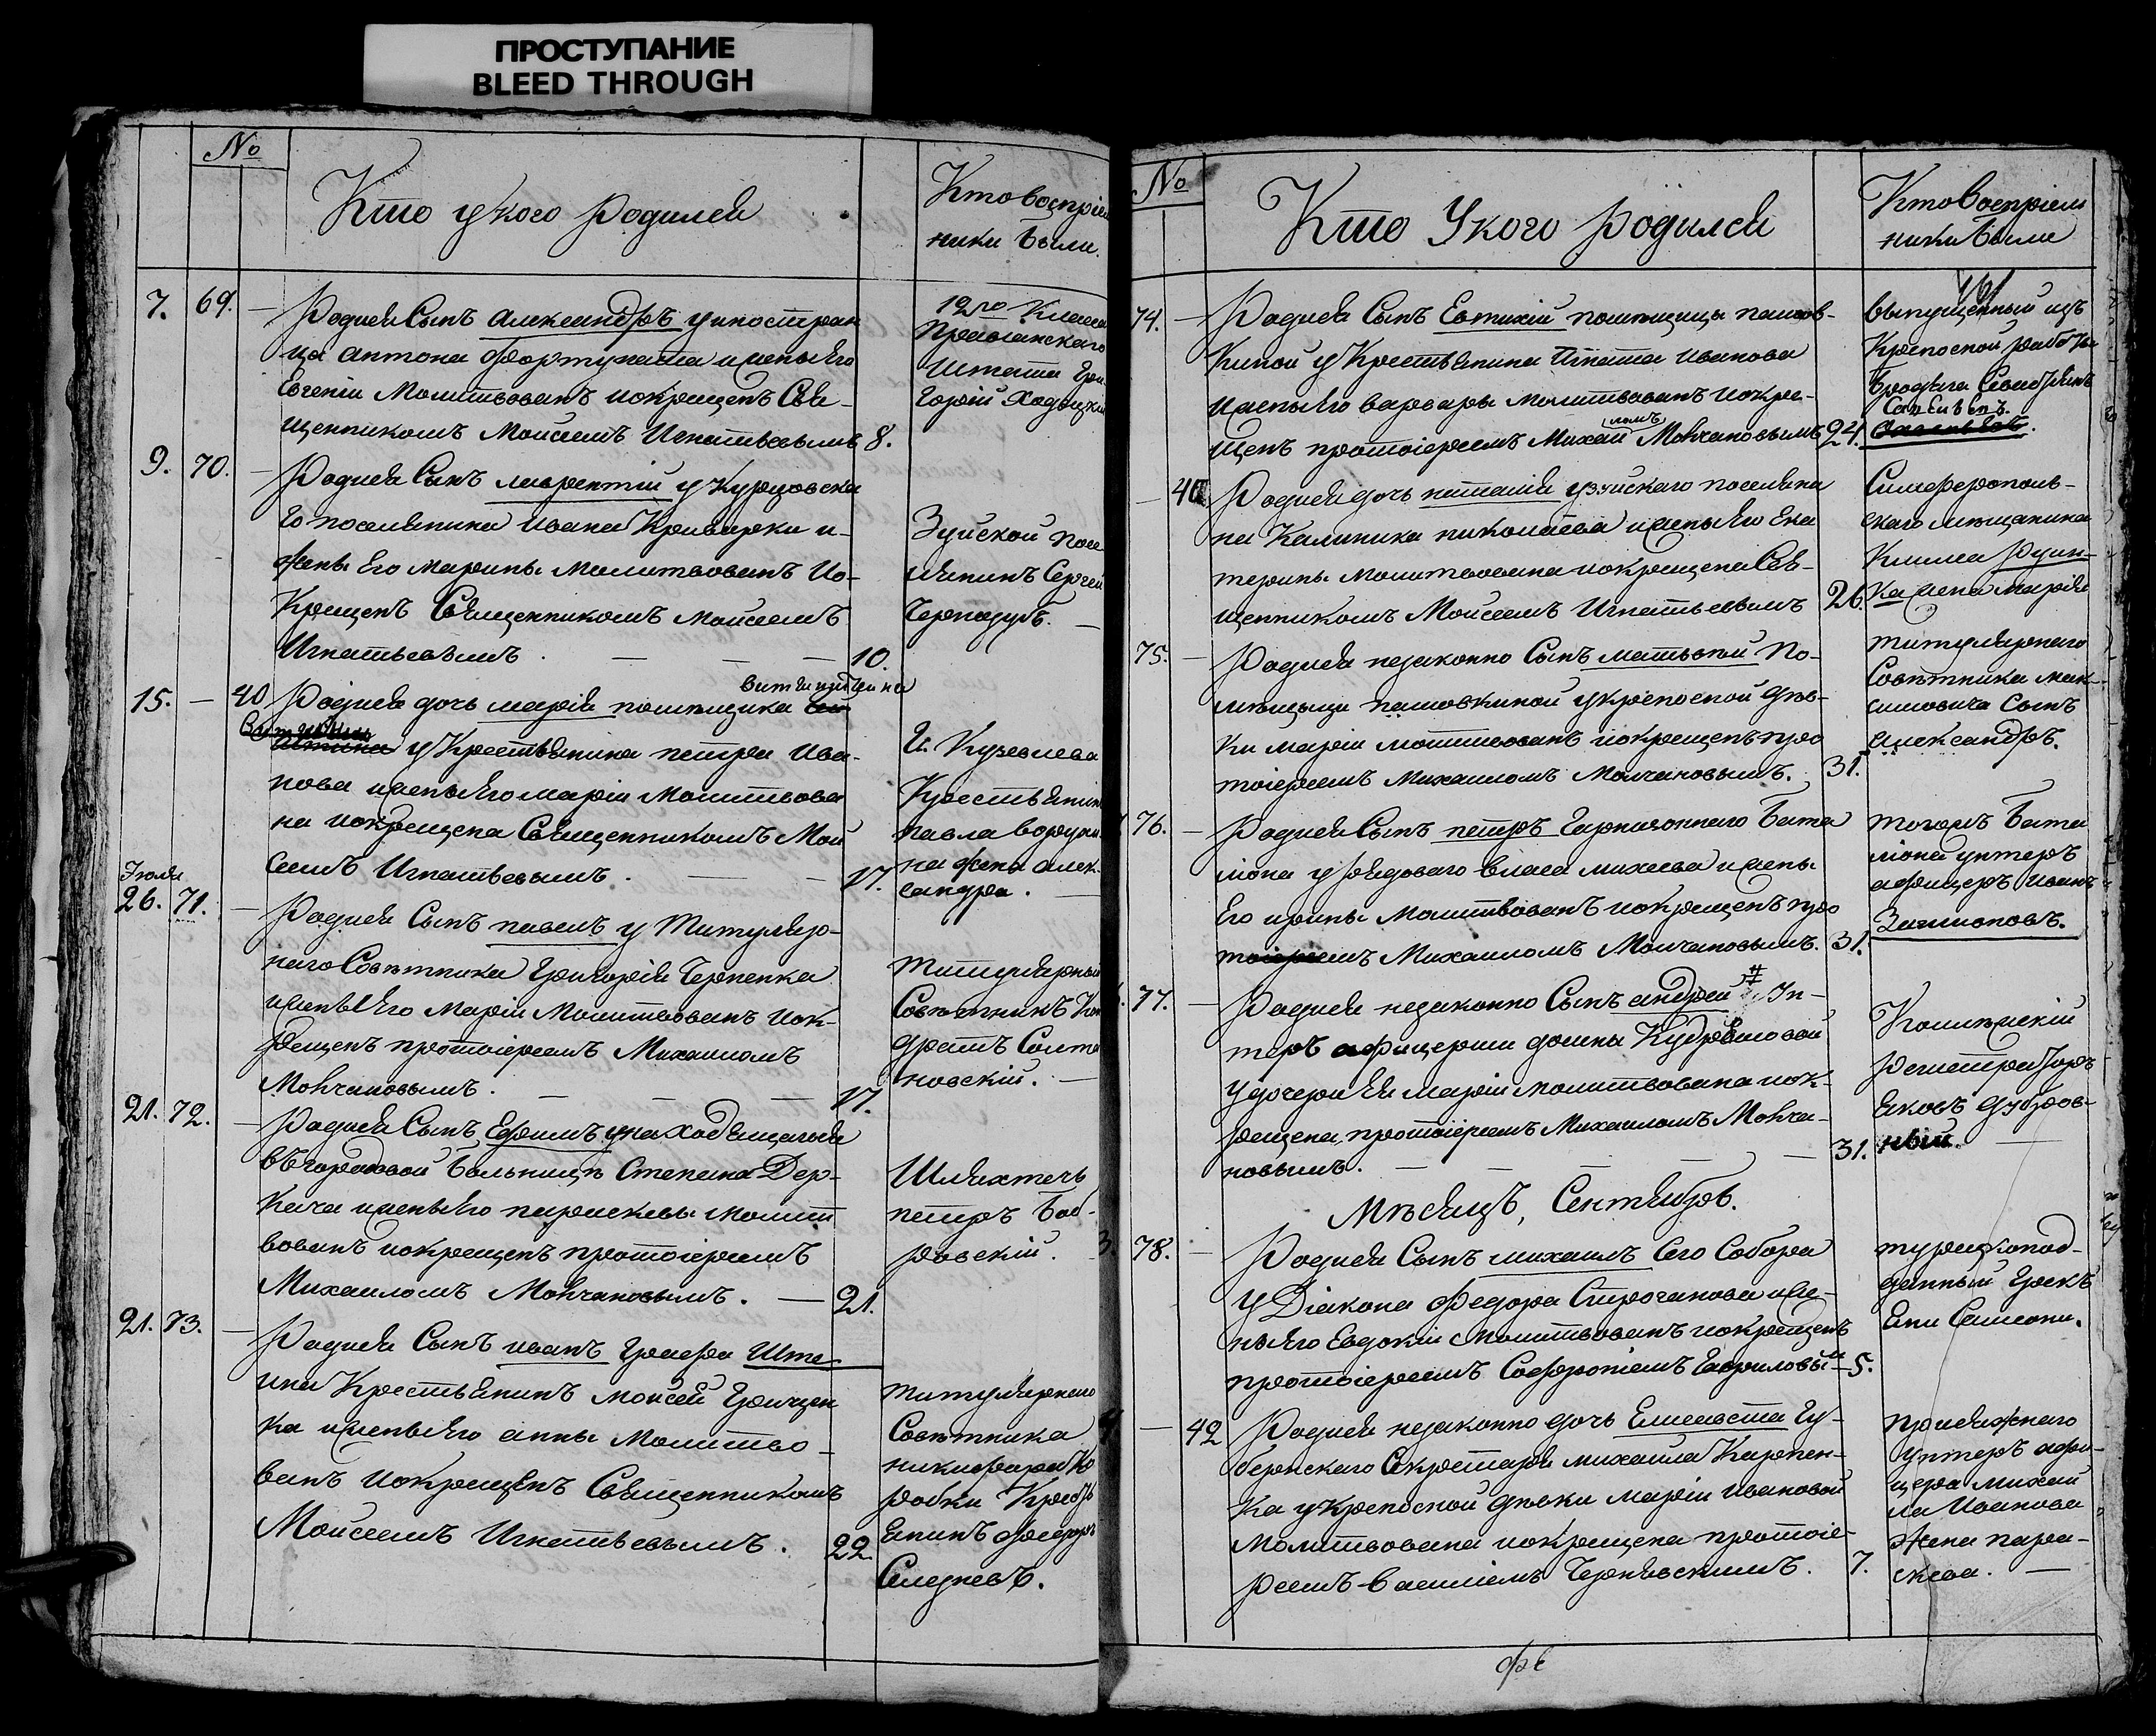 ПРОСТУПАНИЕ
BLEED THROUGH
№
Кто у кого родился
Кто воспріем
ники были.
7. 69. Родился Сынъ Александръ у иностран
ца Антона Фортуната и жены его
Евгеніи Молитвованъ и окрещенъ Свя-
щенникомъ Моисеемъ Игнатьевымъ 8.
12го Класса
Штата Гри
горій
9. 70. Родился Сынъ Лаврентій у Курцовска
го поселянина Ивана Криварки и
жены Его Марины Молитвованъ И о-
Крещенъ Священникомъ Моисеемъ
Игнатьевымъ. 10.
Зуйской посе
лянинъ Сергей
Чернодубъ.
15. — 40 Родися дочь Марія помѣщика
у Крестьянина петра Ива-
нова и жены Его Маріи Молитвова
на и окрещена Священникомъ Мои
сеемъ Игнатьевымъ. 17.
Г. Кузевлева
Крестьянин
павла
на жена Алек-
сандра.
Іюля
26. 71. Родися Сынъ павелъ у Титуляр-
наго Совѣтника Григорія Черненка
и жены Его Маріи Молитвованъ и ок-
рещенъ протоіереемъ Михаиломъ
Молчановымъ. 17.
титулярный
Совѣтникъ Кон
дратъ Солта
новскій.
21. 72. Родися Сынъ Ефимъ у находящагося
въ городовой больницѣ Степана Дер-
кача и жены Его параскевы молит
вованъ и окрещенъ протоіереемъ
Михаиломъ Молчановымъ. 21.
Шляхтечь
петръ Боб-
ровскій.
21. 73. Родися Сынъ иванъ Графа Ште-
ина Крестьянинъ Моисей Грицен
ка и жены Его анны Молитво-
ванъ и окрещенъ Священникомъ
Моисеемъ Игнатьевымъ. 22.
титулярнаго
Совѣтника
никифора Ко
робки Крест
янинъ Федоръ
Селезневъ.
№
Кто У кого родился
Кто Воспріем
ники были
74. Родися Сынъ Евтихій помѣщицы пашков-
киной у Крестьянина Игната Иванова
и жены Его варвары молитвованъ и окре-
щенъ протоіереемъ Михаиломъ Молчановымъ 24.
выпущенный изъ
Крепосной работы
бродяга Севастьянъ
— 40 Родися дочь наталія у зуйскаго поселяни
на Калиника николаева и жены Его Ека
терины Молитвована и окрещена Свя-
щенникомъ Моисеемъ Игнатьевымъ 26.
Симферополь-
скаго мѣщанина
Клима Рудин-
ка жена Марія
75. Родися незаконно Сынъ матьвѣй По-
мѣщицы пашовкиной у крепосной дѣв-
ки Маріи молитвованъ и окрещенъ про
тоіереемъ Михаиломъ Молчановымъ. 31.
титулярнаго
Совѣтника Мак-
симовича Сынъ
Александръ.
76. Родися Сынъ петръ Гарнизоннаго бата
ліона у рядоваго власа михаева и жены
Его ирины Молитвованъ и окрещенъ про
тоіереемъ Михаиломъ Молчановымъ. 31.
тогожъ бата
ліона унтеръ
афицеръ Иванъ
77. Родися незаконно Сынъ андрей # Ун-
теръ афицерши домны Кудрявцовой
у дочери Ея Маріи молитвована и ок-
рещена протоіереемъ Михаиломъ Молча-
новымъ. 31.
Колѣжскій
регистраторъ
яковъ Дубров-
ный.
Мѣсяцъ, Сентябрь.
78. Родися Сынъ михаилъ Сего Собора
у Діакона Федора Строганова и же-
ны Его Евдокіи Молитвованъ и окрещенъ
протоіереемъ Софроніемъ Гавриловым 5.
турецкопод-
данный Грекъ
— 42 Родися незаконно дочь Елисавета Гу-
бернскаго Секретаря михаила Карпен-
ка у Крепосной дѣвки Маріи Ивановой
Молитвована и окрещена протоіе-
реемъ василіемъ Чернявскимъ. 7.
присяжнаго
унтеръ афи-
цера михаи
ла Иванова
жена пара-
скева.